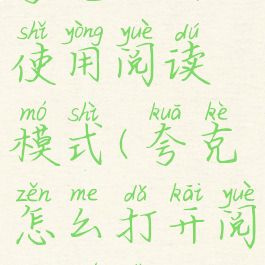 shǐ yòng yuè dú
使用阅读
mó shì kuā kè
模式(夸克
zěn me dǎ kāi yuè
怎么打开阅